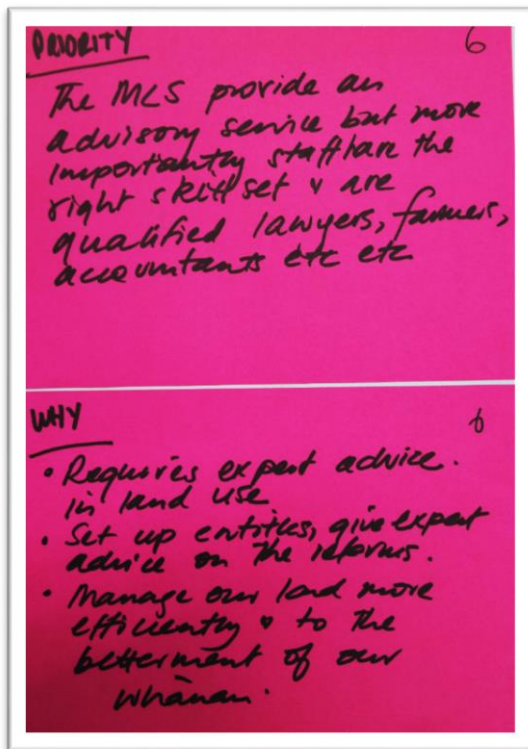 PRIORITY 6
The MLS provide an
advisory service but more
importantly staff have the
right skill set & are
qualified lawyers, farmers,
accountants etc etc
WHY 6
• Requires expert advice.
in land use
• Set up entities, give expert
advice on the reforms.
• Manage our land more
efficiently & to the
betterment of our
whānau.